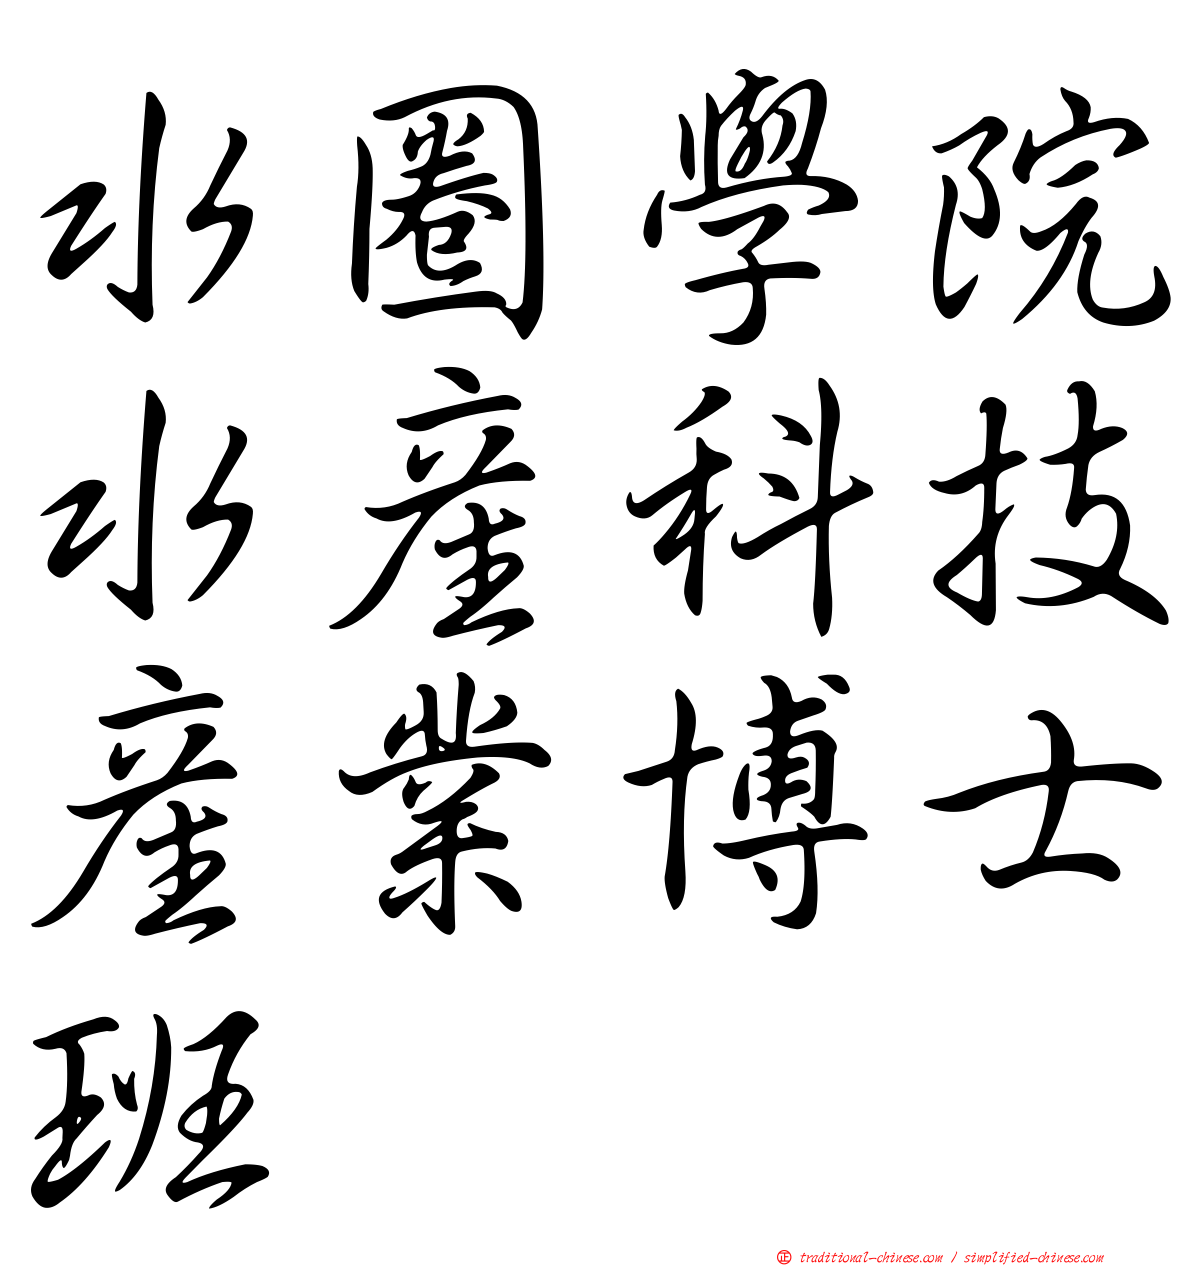 水圈學院
水產科技
產業博士
班
正 traditional-chinese.com / simplified-chinese.com